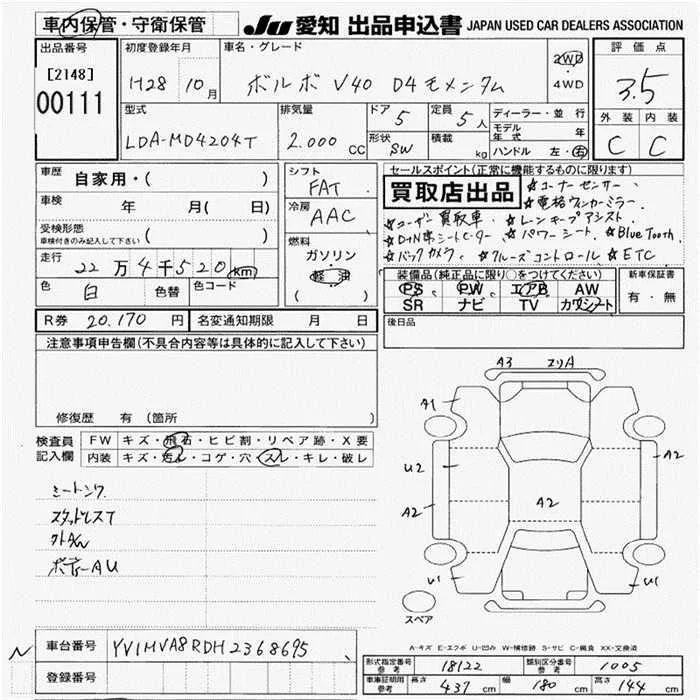 車内保管・守衛保管 JU 愛知 出品申込書 JAPAN USED CAR DEALERS ASSOCIATION
出品番号 初度登録年月 車名・グレード 評価点
[2148] 00111 H28 10月 ボルボ V40 D4 モメンタム 2WD 4WD 3.5
型式 排気量 ドア 5 定員 5人 ディーラー・並行 外装 内装
LDA-MD4204T 2.000 CC 形状 SW 積載 kg モデル年式 年 ハンドル 左・右 C C
車歴 自家用・( ) シフト FAT セールスポイント(正常に機能するものに限ります)
車検 年 月( 日) 冷房 AAC 買取店出品 ☆コーナーセンサー
☆電格ウィンカーミラー
受検形態 車検付きのみ記入して下さい ( ) 燃料 ☆ユーザー買取車 ☆レーンキープアシスト
ガソリン シートヒーター ☆パワーシート ☆Blue Tooth
走行 22万4千520km 軽油 ☆バックカメラ ☆クルーズコントロール ☆ETC
色 白 色替 色コード ( ) 装備品(純正品に限り○をつけてください) 新車保証書
PS PW エアB AW 有・無
SR ナビ TV カワシート
R券 20.170円 名変通知期限 月 日 後日品
注意事項申告欄(不具合内容等は具体的に記入して下さい)
修復歴 有 (箇所 )
検査員記入欄 FW キズ・飛石・ヒビ割・リペア跡・X要
内装 キズ・汚れ・コゲ・穴・スレ・キレ・破レ
A3 エリA
A1
U2 A2
A2 A2
U1 U1
シートシワ
スタッドレスT
ボディーAU
スペア
A-キズ E-エクボ U-凹み W-補修跡 S-サビ C-腐食 XX-交換済
車台番号 YV1MVA8RDH2368695
登録番号
形式指定番号 参考 18122 類別区分番号 参考 1005
車庫証明用 参考 長さ 437 cm 幅 180 cm 高さ 144 cm